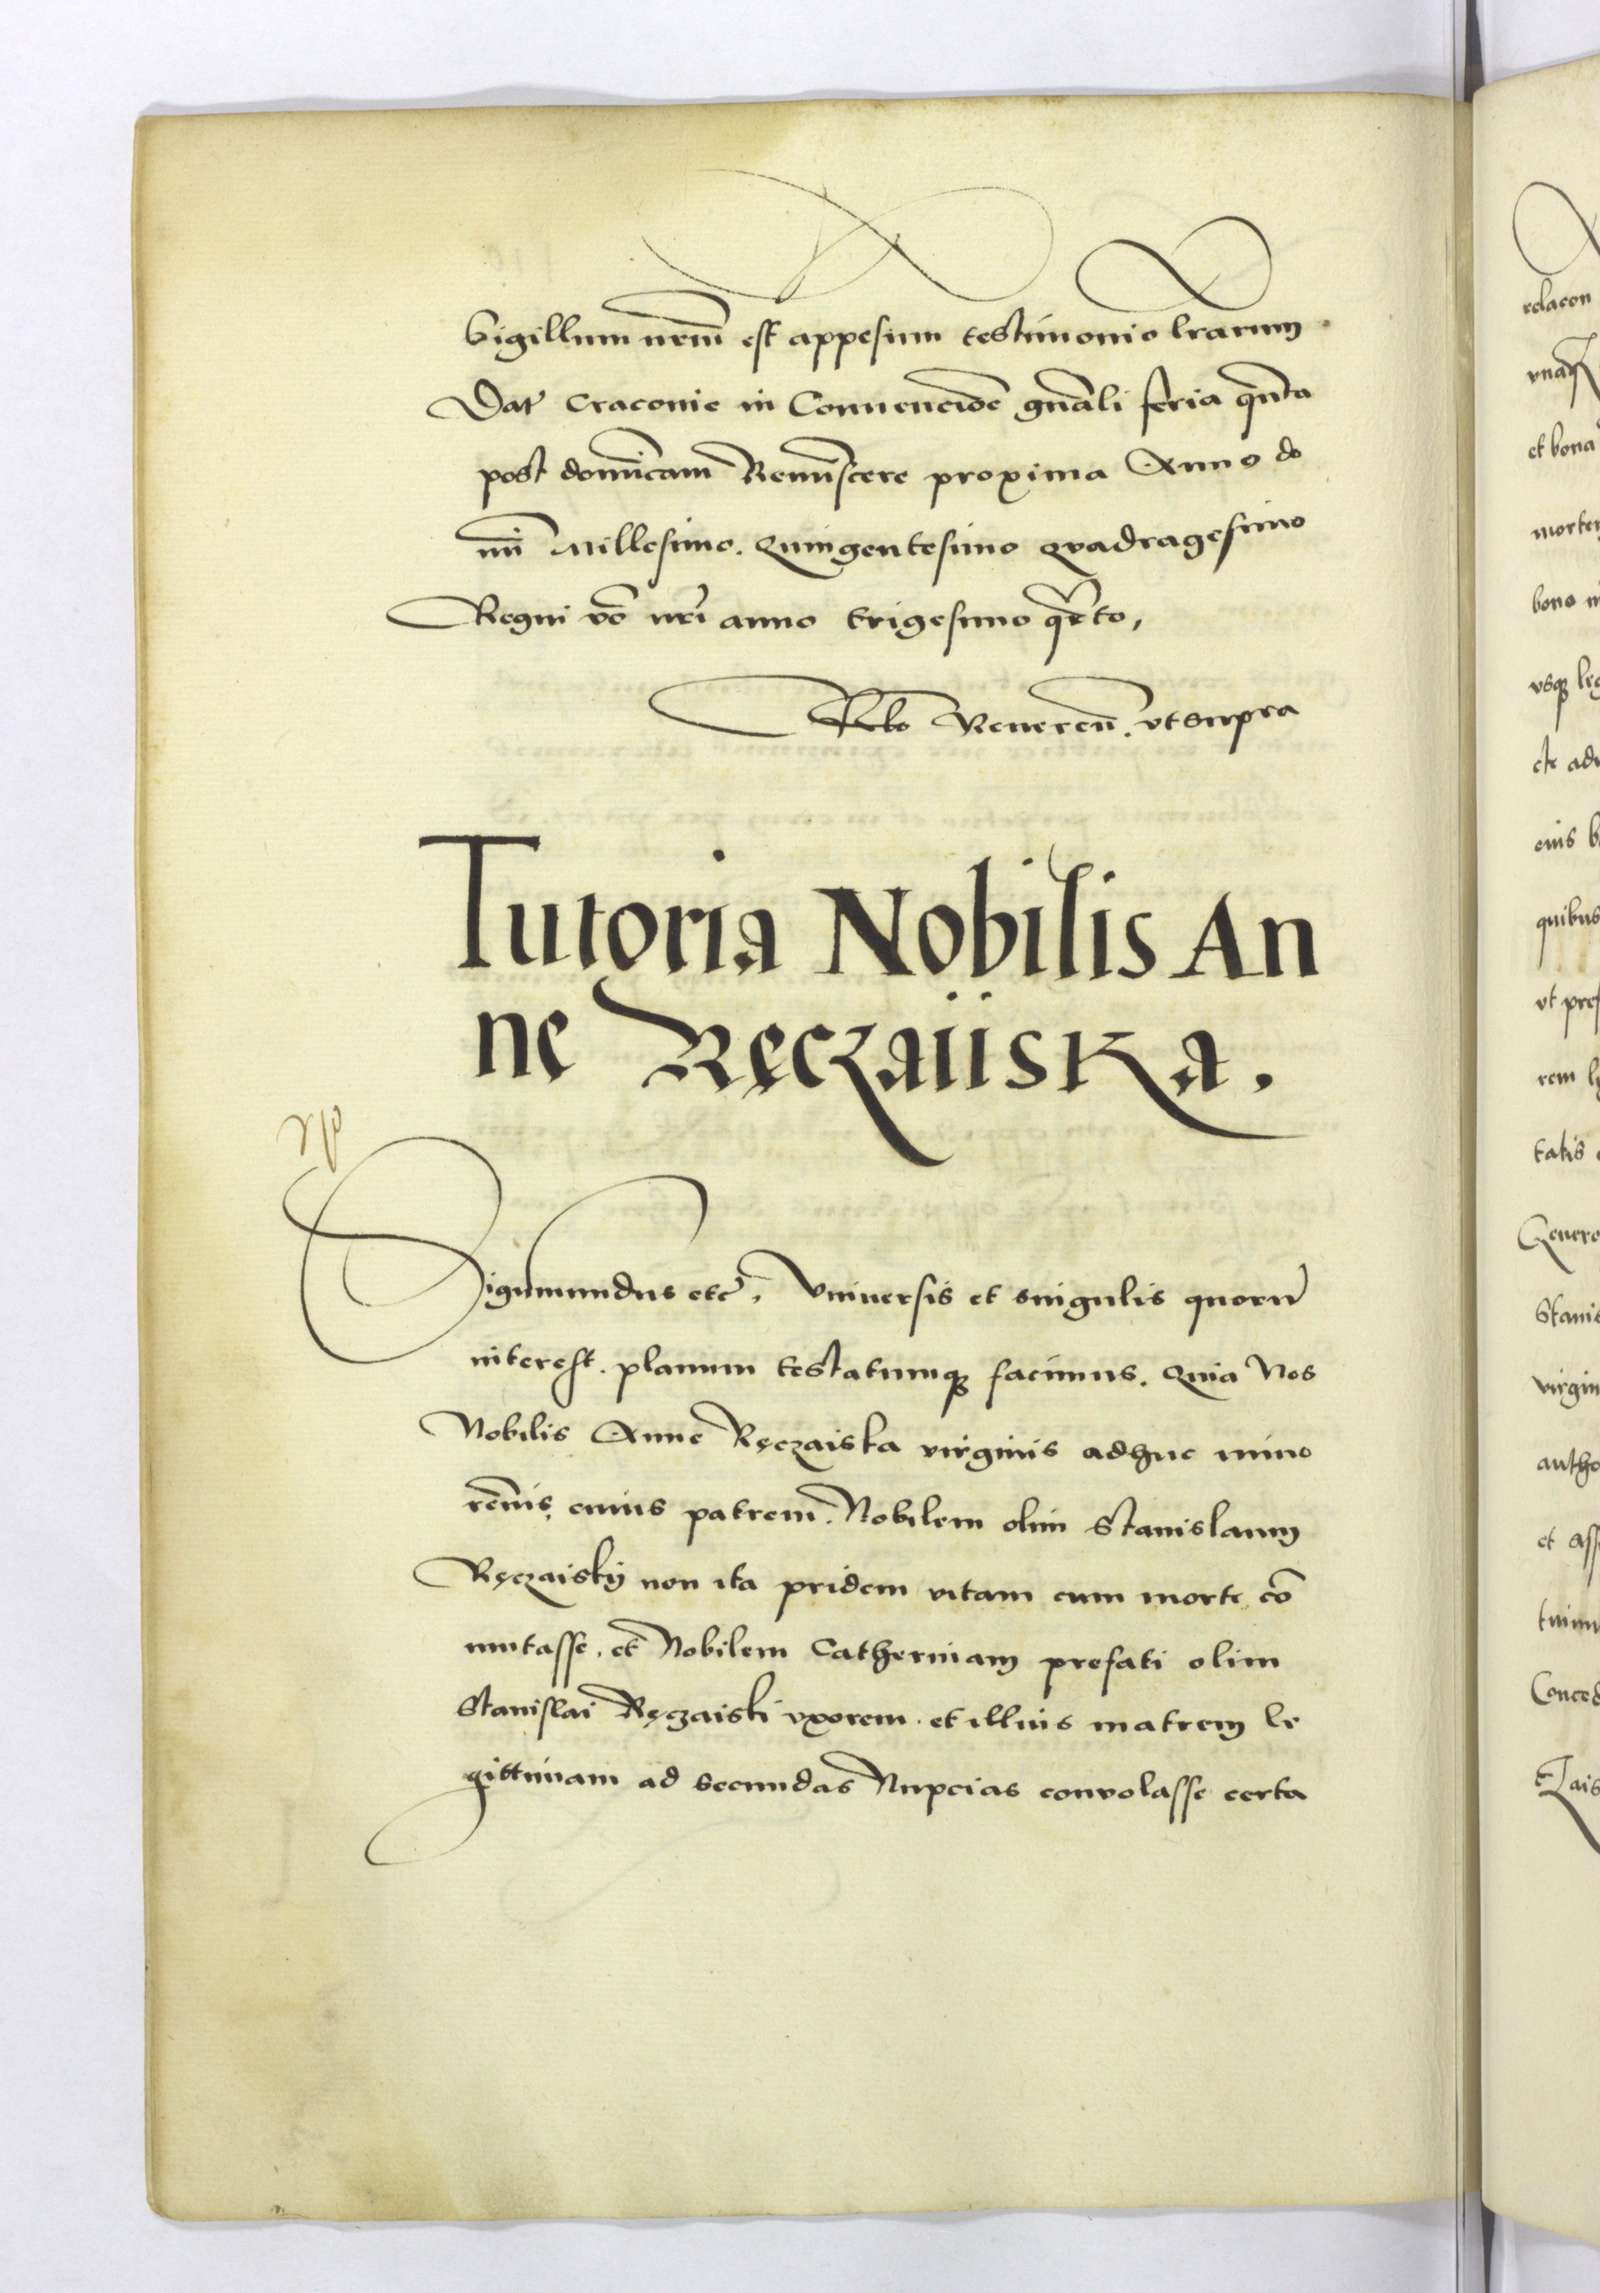 Sigillum nrm̄ est appesum testimonio lrarum
Dat̄ Cracovie in Convencioē gnāli feria qn̄ta
post dominicam Reminiscere proxima Anno do
mī Millesimo. Quingentesimo Quadragesimo
Regni vō nrī anno trigesimo qrto,
Rlo Reveren̄. ut supra
Tutoria Nobilis An
nę Ręczaiiska.
Sigismundus etc̄. Universis et singulis quorū
interest. planum testatumq̄ facimus. Quia Nos
Nobilis Anne Ręczaiska virginis adhuc mino
rēnis, cuius patrem. Nobilem olim Stanislaum
Ręczaiskij non ita pridem vitam cum morte cō
mutasse. et Nobilem Catherinam prefati olim
Stanislai Ręczaiski uxorem. et illius matrem le
gittimam ad secundas Nupcias convolasse certa
relacon
unaq
et bona
bono
usq leg
eius b
quibus
ut pref
rem
tatis
Genero
Stanis
virgin
autho
et ass
tuimu
Conced